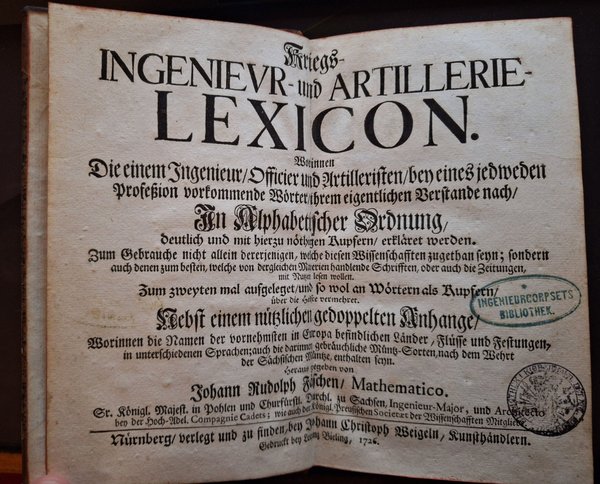 Kriegs-
INGENIEVR- und ARTILLERIE-
LEXICON.
Worinnen
Die einem Ingenieur/ Officier und Artilleristen/ bey eines jedweden
Profeßion vorkommende Wörter/ ihrem eigentlichen Verstande nach/
In Alphabetischer Ordnung/
deutlich und mit hierzu nöthigen Kupfern/ erkläret werden.
Zum Gebrauche nicht allein dererjenigen, welche diesen Wissenschafften zugethan seyn; sondern
auch denen zum besten, welche von dergleichen Materien handlende Schrifften, oder auch die Zeitungen,
mit Nutzen lesen wollen.
Zum zweyten mal aufgeleget/ und so wol an Wörtern als Kupfern/
über die Helfte vermehret.
Nebst einem nützlichen gedoppelten Anhange/
Worinnen die Namen der vornehmsten in Europa befindlichen Länder, Flüsse und Festungen,
in unterschiedenen Sprachen; auch die darinnen gebräuchliche Müntz-Sorten, nach dem Wehrt
der Sächsischen Müntze, enthalten seyn.
Heraus gegeben von
Johann Rudolph Fäschen/ Mathematico.
Sr. Königl. Majest. in Pohlen und Churfürstl. Durchl. zu Sachsen, Ingenieur-Major, und Architecto
bey der Hoch-Adel. Compagnie Cadets; wie auch der Königl. Preußischen Societæt der Wissenschafften Mitglied.
Nürnberg/ verlegt und zu finden, bey Johann Christoph Weigeln, Kunsthändlern.
Gedruckt bey Lorenz Bieling, 1726.
INGENIEURCORPSETS
BIBLIOTHEK.